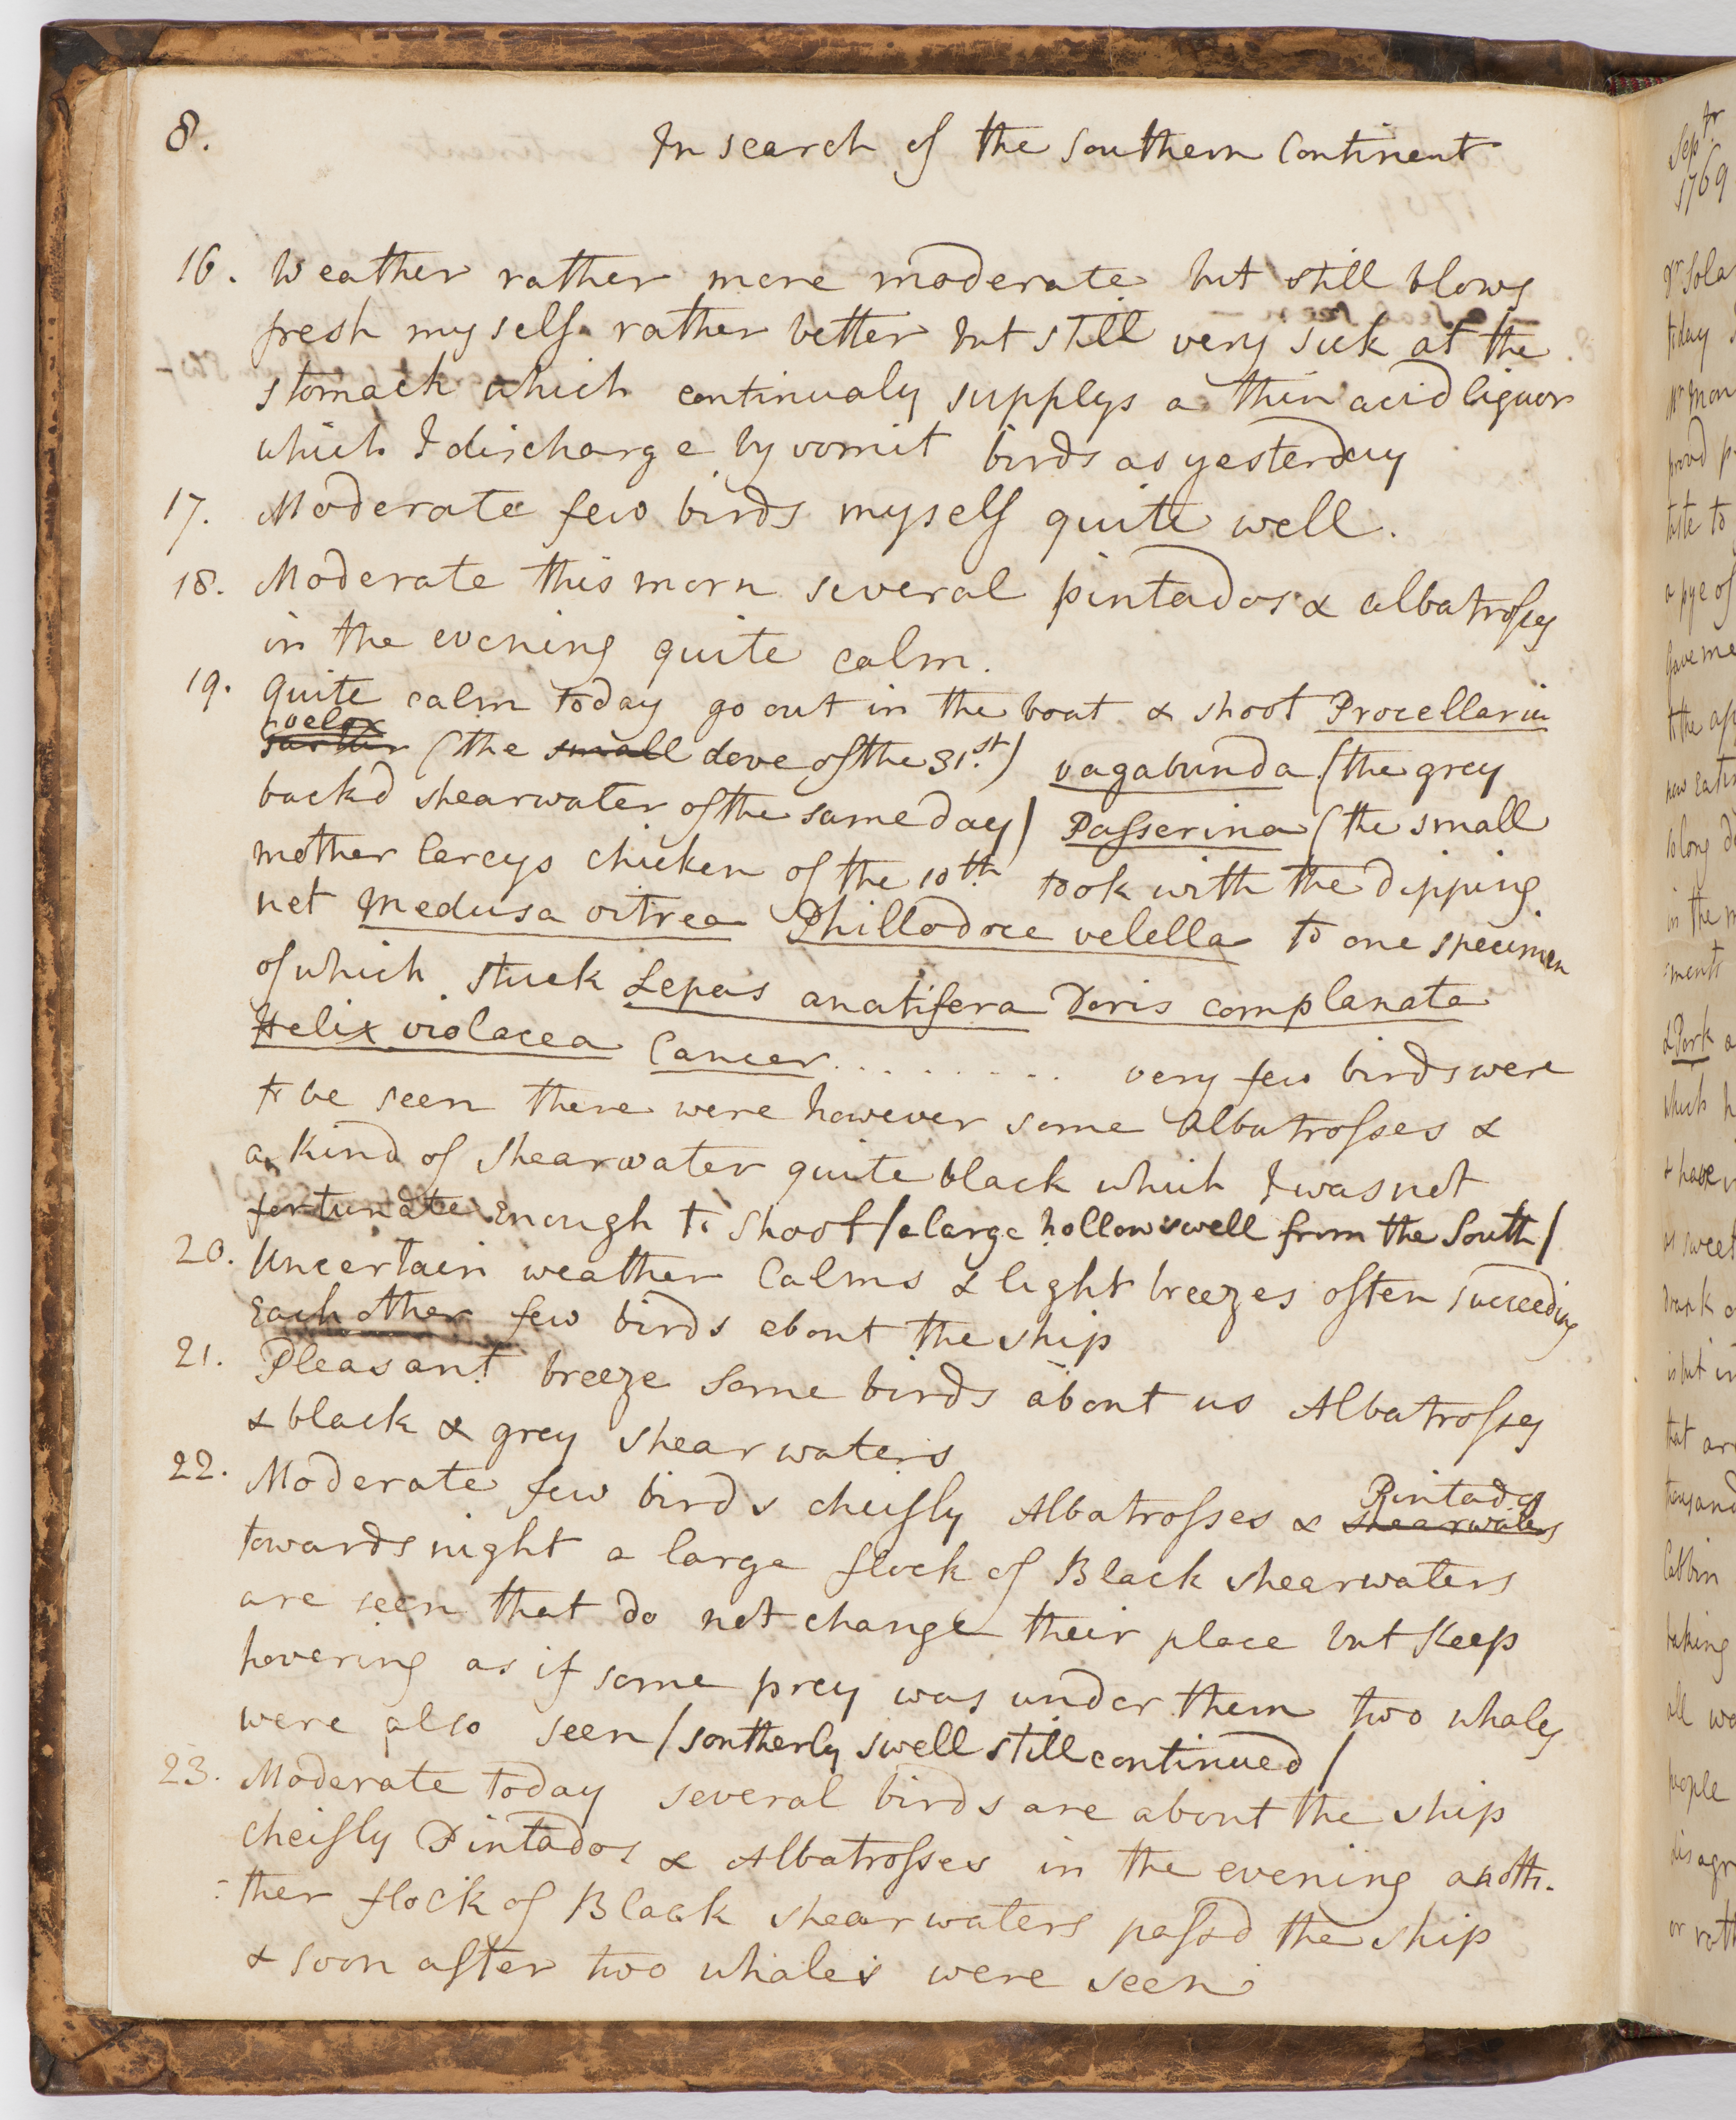 8.
In search of the Southern Continent
16. Weather rather more moderate but still blows
fresh myself rather better but still very sick at the
stomack which continualy supplys a thin acid liquor
which I discharge by vomit birds as yesterday
17. Moderate few birds myself quite well.
18. Moderate this morn several pintados & albatrosses
in the evening quite calm.
19. Quite calm today go out in the boat & shoot Procellaria
velox
(the small dove of the 31st.) vagabunda (the grey
backd shearwater of the same day) Passerina (the small
mother Careys chicken of the 10th. took with the dipping
net Medusa vitrea Phillodoce velella to one specimen
of which stuck Lepas anatifera Doris complanata
Helix violacea Cancer . . . . . . . . . very few birds were
to be seen there were however some Albatrosses &
a kind of Shearwater quite black which I was not
fortunate enough to shoot / a large hollow swell from the South /
20. Uncertain weather Calms & light breezes often succeeding
Each other few birds about the ship
21. Pleasant breeze some birds about us Albatrosses
& black & grey shearwaters
22. Moderate few birds cheifly Albatrosses & shearwaters
Pintados
towards night a large flock of Black shearwaters
are seen that do not change their place but Keep
hovering as if some prey was under them two whales
were also seen / southerly swell still continued /
23. Moderate today several birds are about the ship
cheifly Pintados & Albatrosses in the evening anoth-
-ther flock of Black shearwaters passd the ship
& soon after two whales were seen
Sepr
1769
Dr Sola
today
Mr Mon
provd p
taste to
a pye of
gave me
the ap
now Eatin
so long
in the
ments
& Pork a
which h
& have
as sweet
Drank
is but in
that are
thousand
Cabbin
taking
all wa
people
disagr
or rath